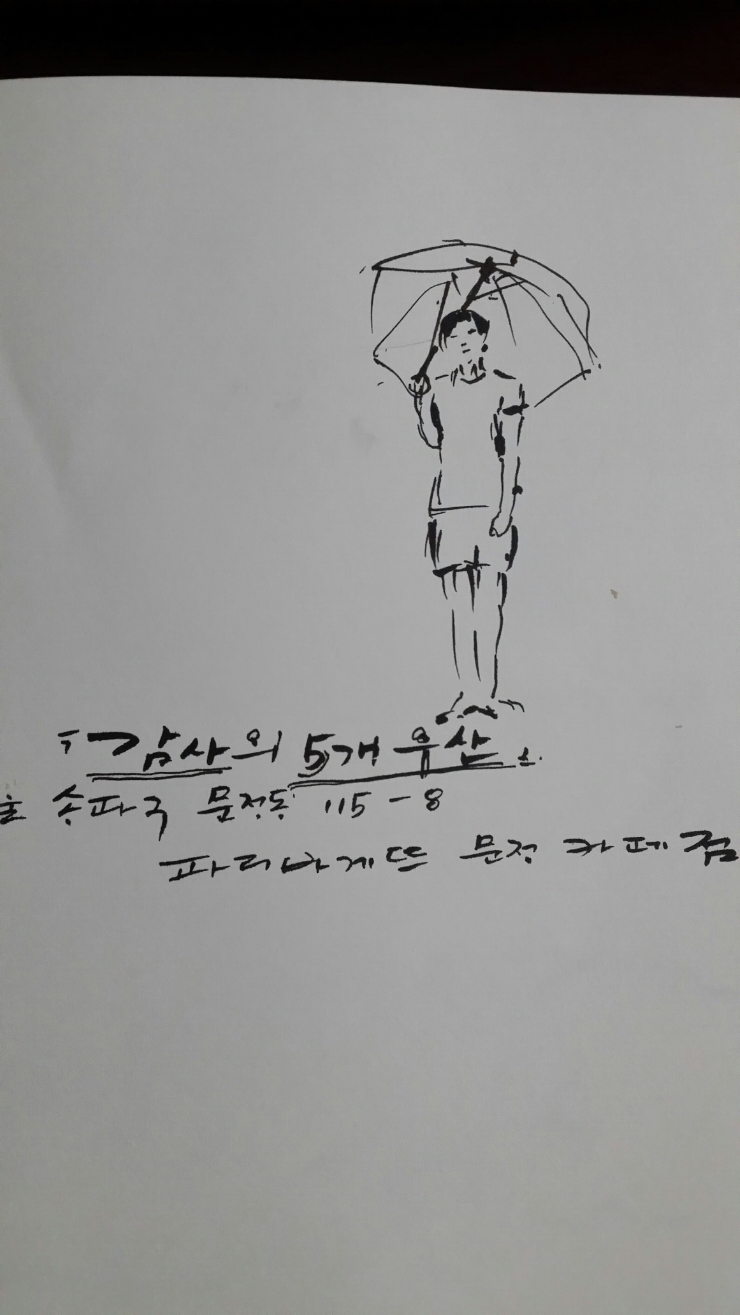 「감사의 5개 우산」
송파구 문정동 115-8
파리바게뜨 문정 카페점